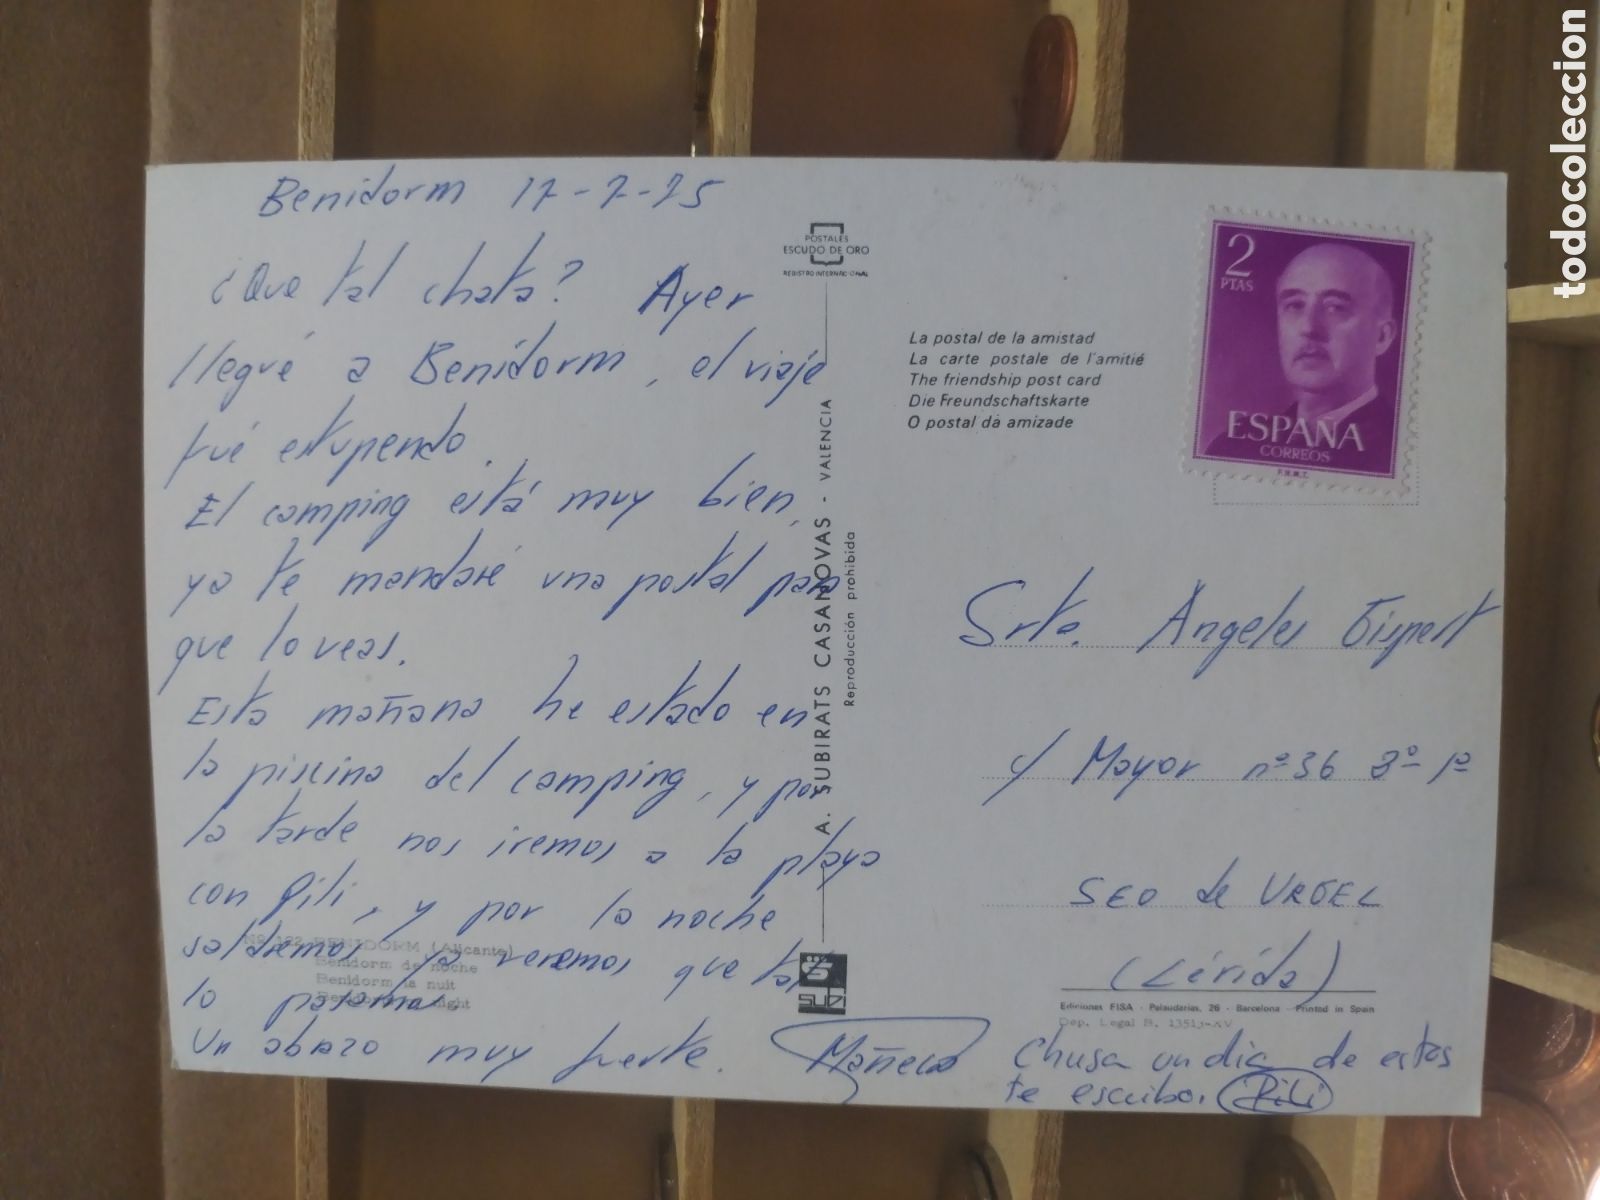 Benidorm 17-7-75
¿Que tal chata? Ayer
llegué a Benidorm, el viaje
fué estupendo.
El camping está muy bien,
ya te mandaré una postal para
que lo veas.
Esta mañana he estado en
la piscina del camping, y por
la tarde nos iremos a la playa
con Pili, y por la noche
saldremos ya veremos que tal
lo pasamos
Un abrazo muy fuerte.
Nº 182 BENIDORM (Alicante)
Benidorm de noche
Benidorm la nuit
Benidorm night
POSTALES
ESCUDO DE ORO
REGISTRO INTERNACIONAL
A. SUBIRATS CASANOVAS - VALENCIA
Reproducción prohibida
SUZI
La postal de la amistad
La carte postale de l'amitié
The friendship post card
Die Freundschaftskarte
O postal da amizade
2
PTAS
ESPAÑA
CORREOS
F.N.M.T.
Srta. Angeles Gispert
c/ Mayor nº 36 3º-1ª
SEO de URGEL
(Lérida)
Ediciones FISA - Palaudarias, 26 - Barcelona - Printed in Spain
Dep. Legal B.
Chusa un dia de estos
te escribo. Pili
todocoleccion